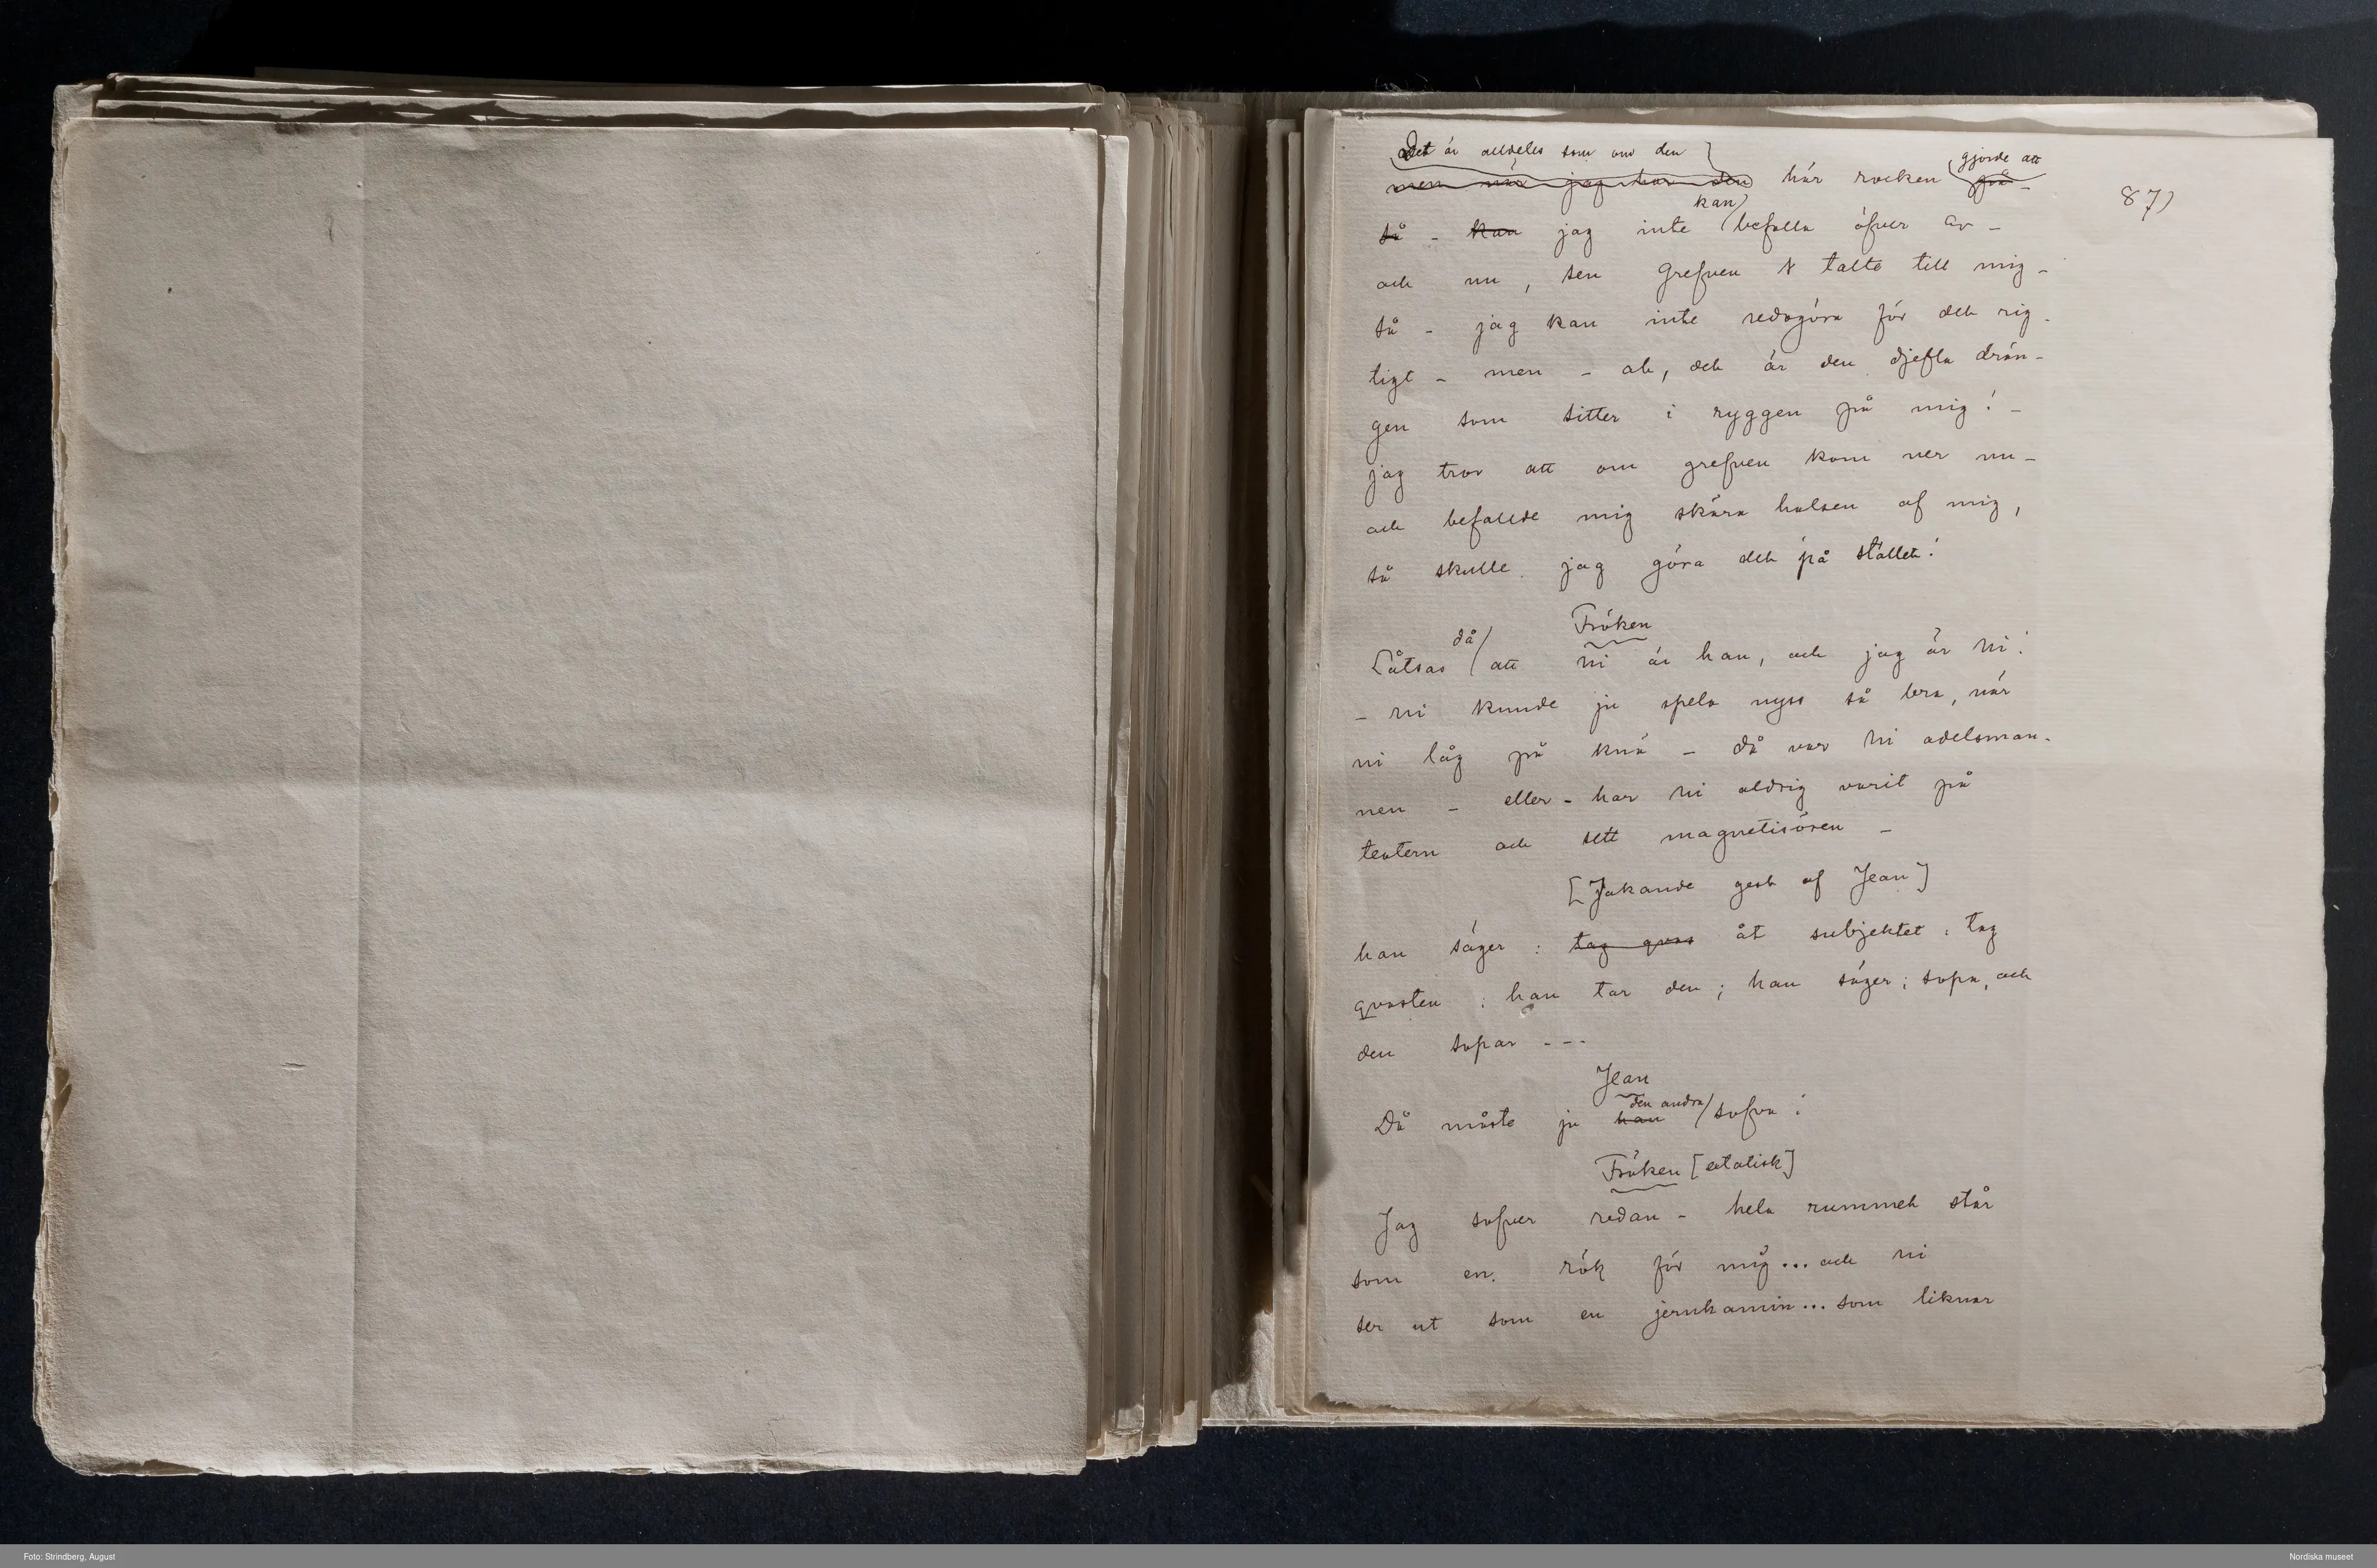 Det är alldeles som om den gjorde att
men när jag har den här rocken på -
87)
kan
så - kan jag inte befalla öfver Er -
och nu, sen Grefven talte till mig -
så - jag kan inte redogöra för det rig-
tigt - men - ah, det är den djefla drän-
gen som sitter i ryggen på mig! -
jag tror att om grefven kom ner nu -
och befallde mig skära halsen af mig,
så skulle jag göra det på stället!
Fröken
då
Låtsas att ni är han, och jag är Ni!
- ni kunde ju spela nyss så bra, när
ni låg på knä - då var Ni adelsman-
nen - eller - har Ni aldrig varit på
teatern och sett magnetisören -
[Jakande gest af Jean]
han säger: tag qvas åt subjektet: tag
qvasten; han tar den; han säger: sopa, och
den sopar - - -
Jean
den andra
Då måste ju han sofva!
Fröken [extatisk]
Jag sofver redan - hela rummet står
som en rök för mig... och ni
ser ut som en jernkamin... som liknar
Foto: Strindberg, August
Nordiska museet